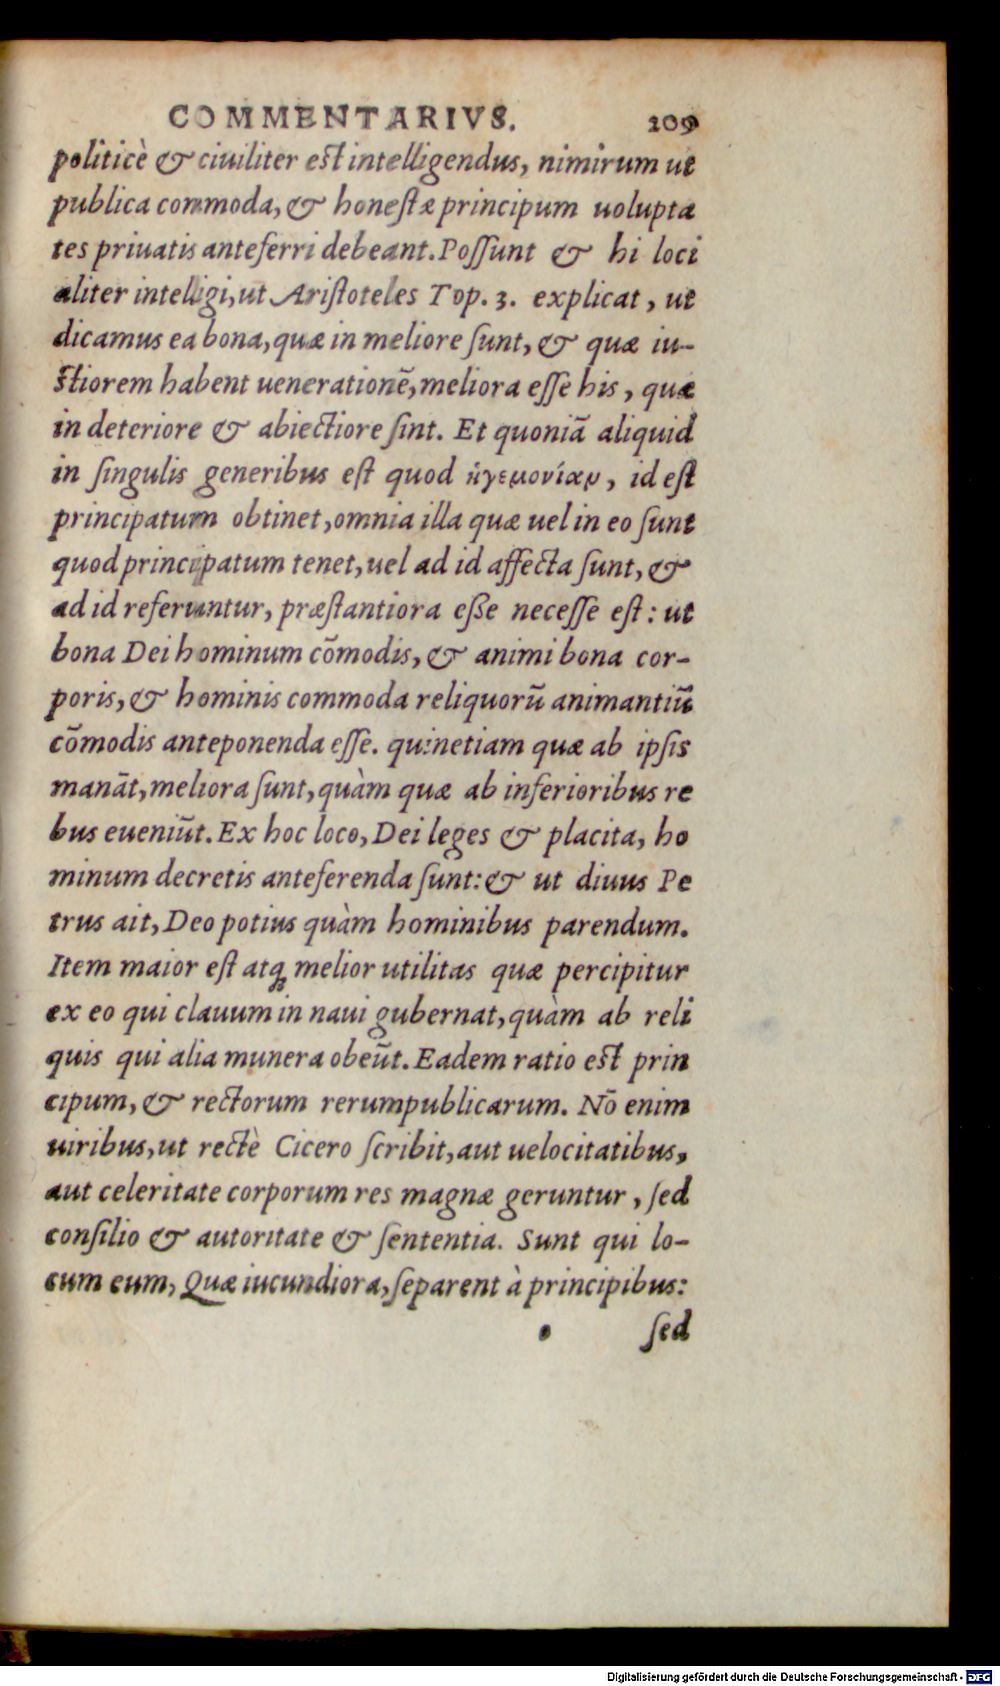 COMMENTARIVS. 209
politicè & ciuiliter est intelligendus, nimirum ut
publica commoda, & honestæ principum uolupta
tes priuatis anteferri debeant. Possunt & hi loci
aliter intelligi, ut Aristoteles Top. 3. explicat, ut
dicamus ea bona, quæ in meliore sunt, & quæ iu-
stiorem habent uenerationē, meliora esse his, quæ
in deteriore & abiectiore sint. Et quoniā aliquid
in singulis generibus est quod ἡγεμονίαν, id est
principatum obtinet, omnia illa quæ uel in eo sunt
quod principatum tenet, uel ad id affecta sunt, &
ad id referuntur, præstantiora esse necesse est: ut
bona Dei hominum cōmodis, & animi bona cor-
poris, & hominis commoda reliquorū animantiū
cōmodis anteponenda esse. quinetiam quæ ab ipsis
manāt, meliora sunt, quàm quæ ab inferioribus re
bus eueniūt. Ex hoc loco, Dei leges & placita, ho
minum decretis anteferenda sunt: & ut diuus Pe
trus ait, Deo potius quàm hominibus parendum.
Item maior est atq; melior utilitas quæ percipitur
ex eo qui clauum in naui gubernat, quàm ab reli
quis qui alia munera obeūt. Eadem ratio est prin
cipum, & rectorum rerumpublicarum. Nō enim
uiribus, ut rectè Cicero scribit, aut uelocitatibus,
aut celeritate corporum res magnæ geruntur, sed
consilio & autoritate & sententia. Sunt qui lo-
cum eum, Quæ iucundiora, separent à principibus:
sed
Digitalisierung gefördert durch die Deutsche Forschungsgemeinschaft - DFG